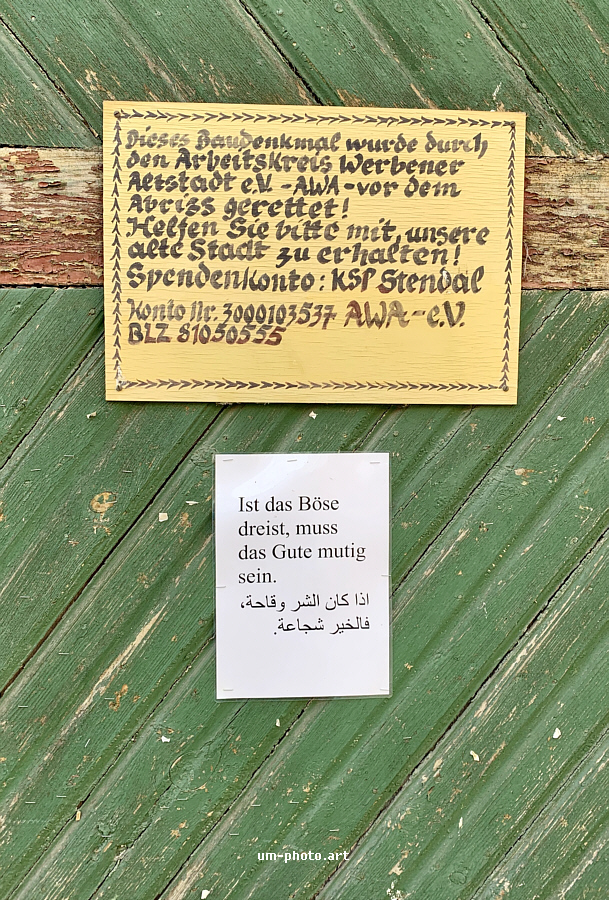 Dieses Baudenkmal wurde durch
den Arbeitskreis Werbener
Altstadt e.V. - AWA - vor dem
Abriss gerettet!
Helfen Sie bitte mit, unsere
alte Stadt zu erhalten!
Spendenkonto: KSP Stendal
Konto Nr. 3000103537 AWA - e.V.
BLZ 81050555
Ist das Böse
dreist, muss
das Gute mutig
sein.
اذا كان الشر وقاحة،
فالخير شجاعة.
um-photo.art